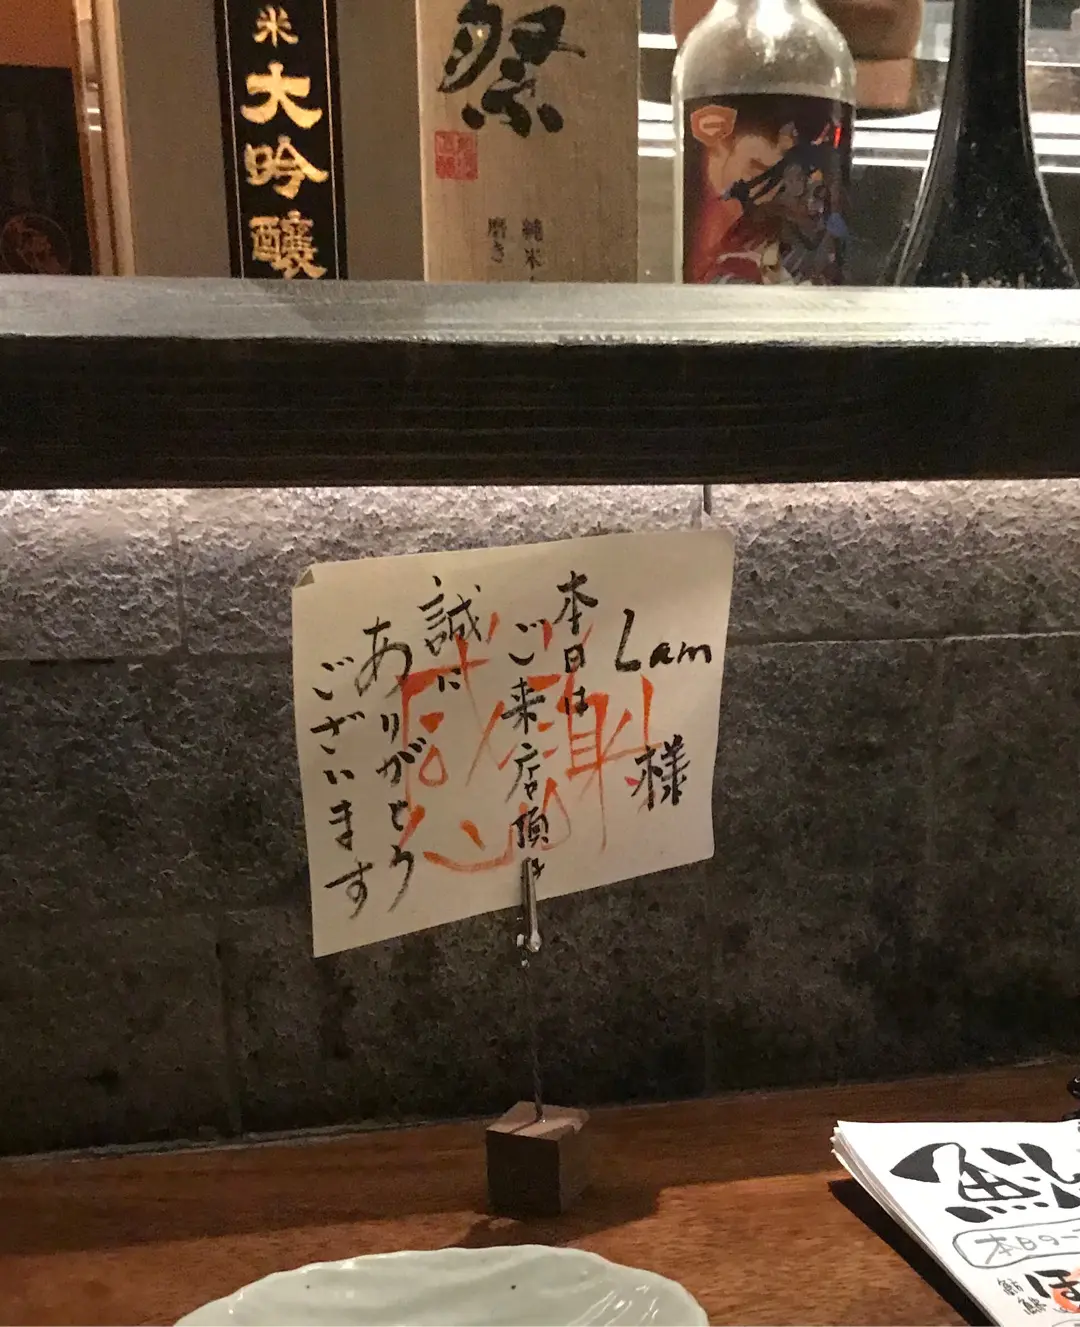 米大吟醸
祭
純米
磨き
Lam 様
本日は
ご来店頂き
誠に
ありがとう
ございます
感謝
本日の